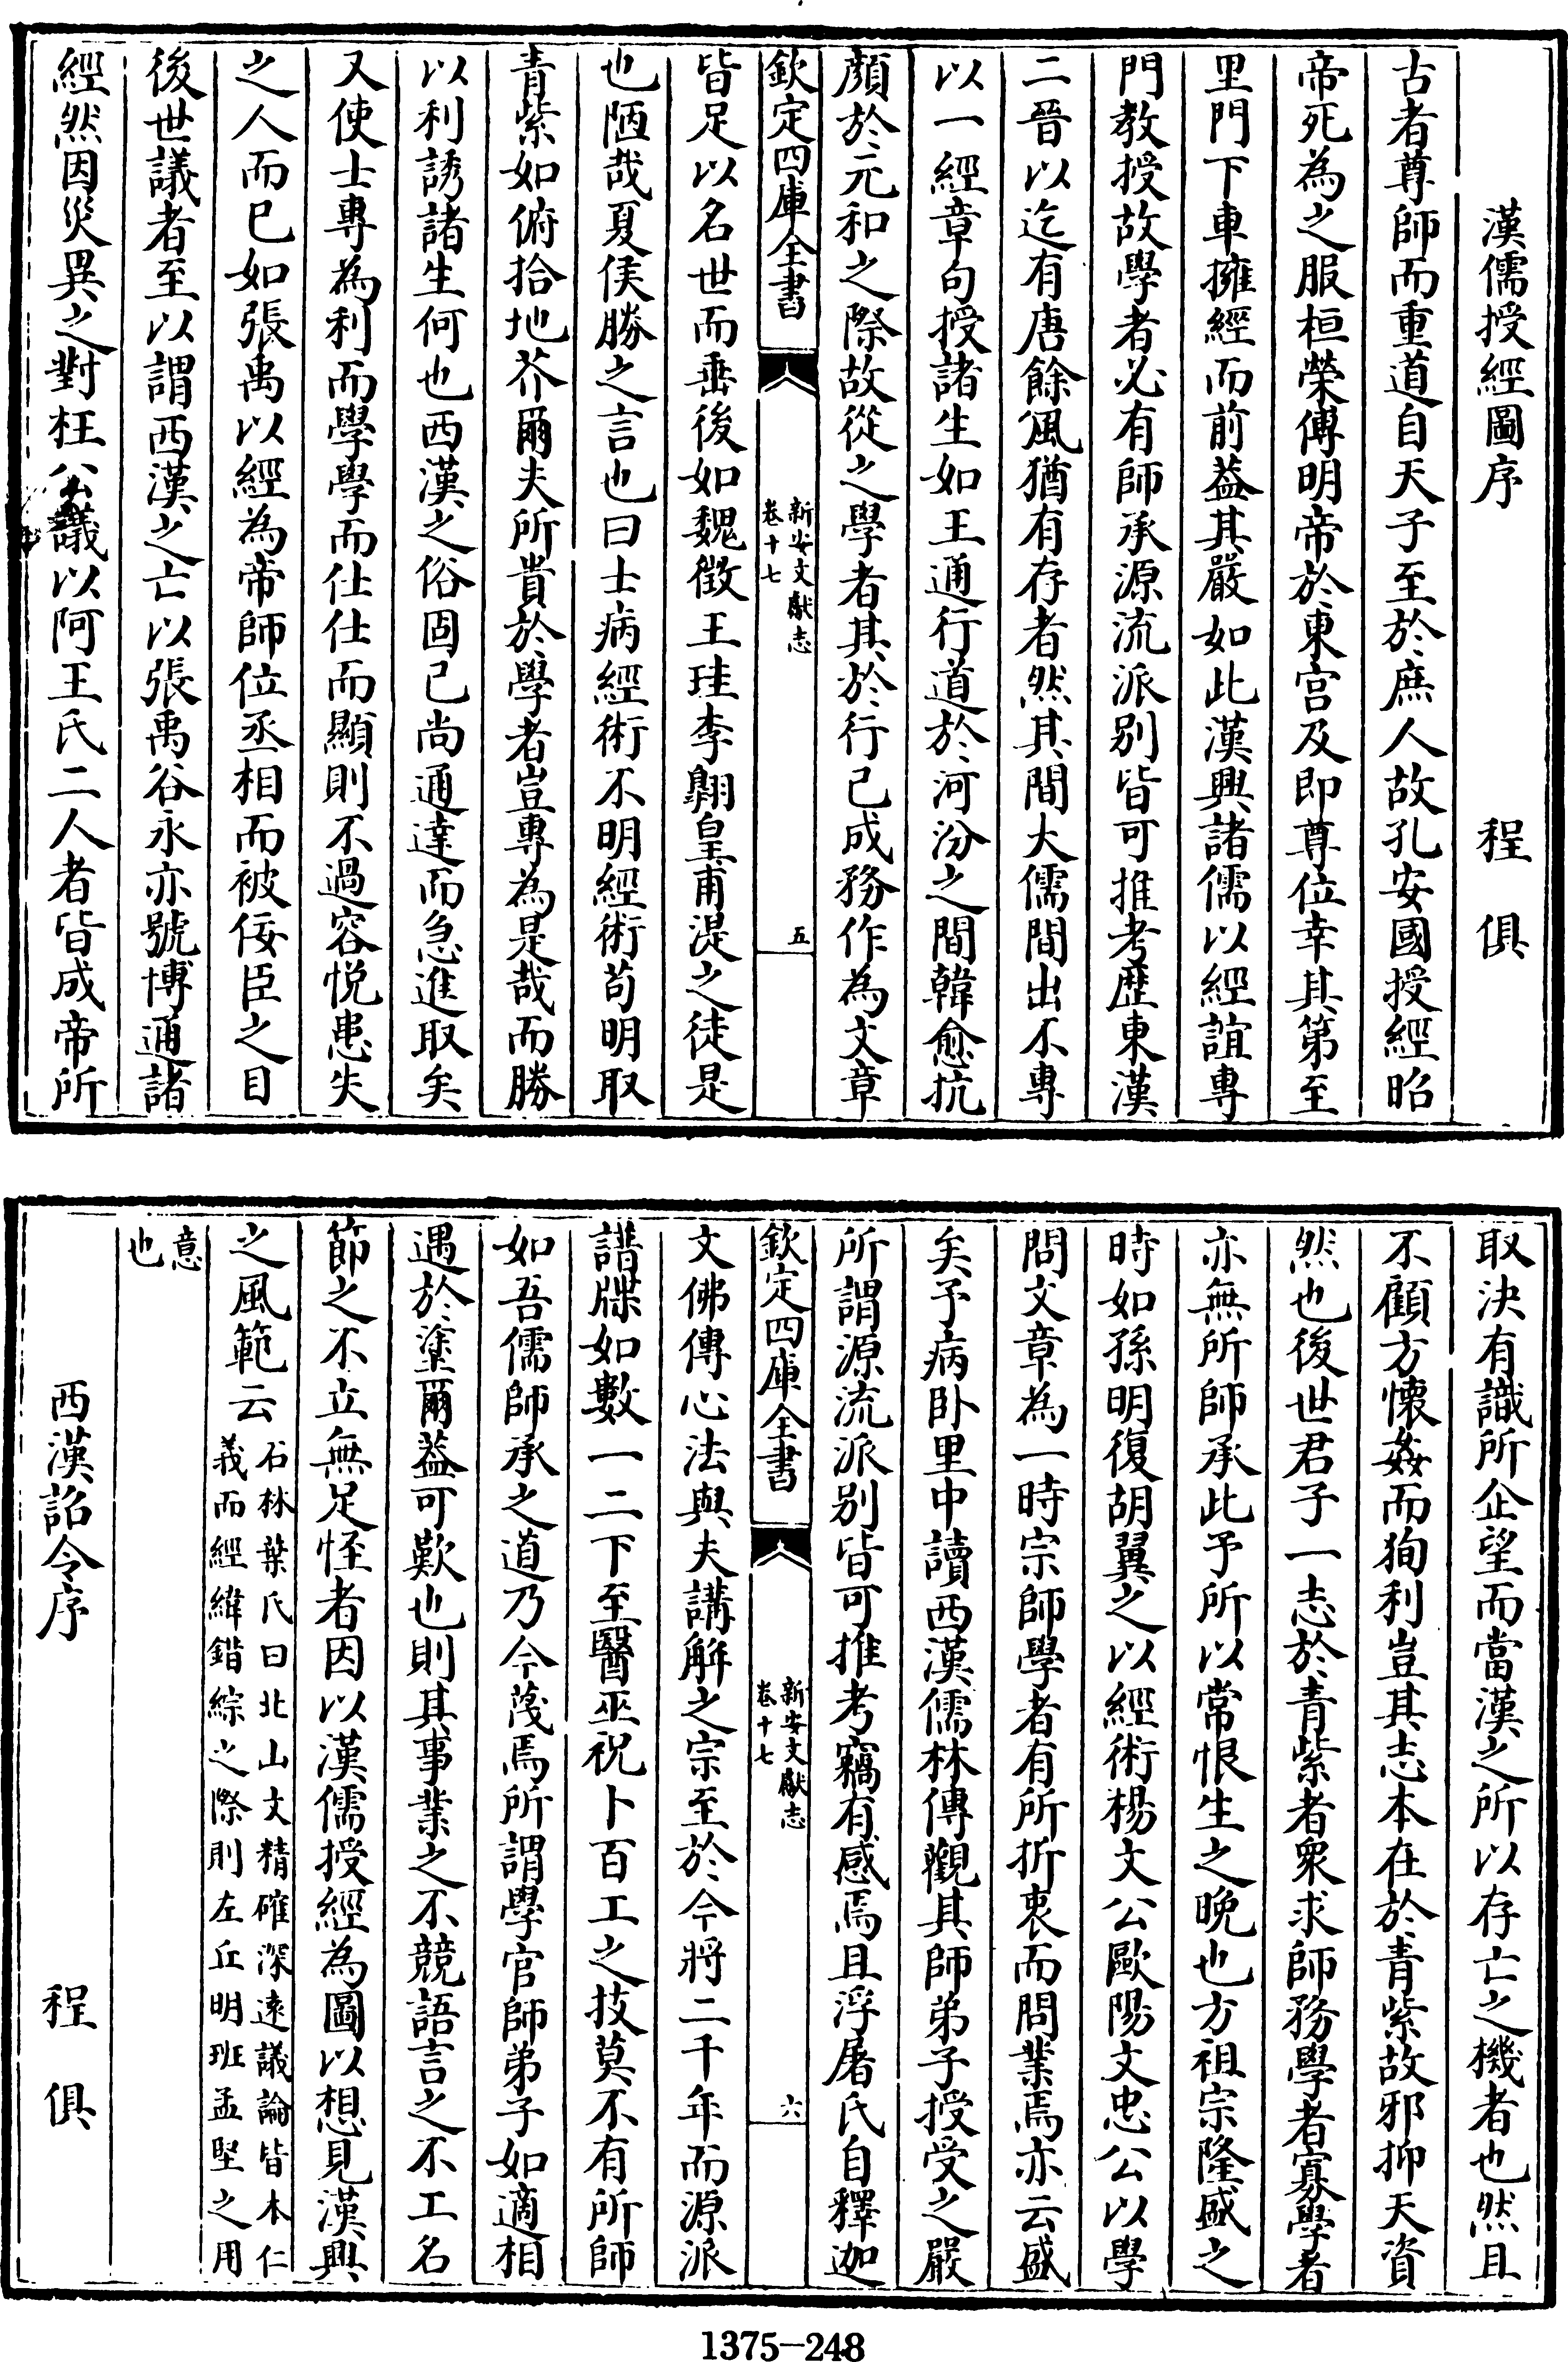 漢儒授經圖序　程俱
古者尊師而重道自天子至於庶人故孔安國授經昭
帝死為之服桓榮傅明帝於東宫及即尊位幸其第至
里門下車擁經而前葢其嚴如此漢興諸儒以經誼專
門教授故學者必有師承源流派别皆可推考歴東漢
二晉以迄有唐餘風猶有存者然其間大儒間出不專
以一經章句授諸生如王通行道於河汾之間韓愈抗
顔於元和之際故從之學者其於行己成務作為文章
欽定四庫全書
新安文獻志
卷十七
五
皆足以名世而垂後如魏徴王珪李翺皇甫湜之徒是
也陋哉夏侯勝之言也曰士病經術不明經術茍明取
青紫如俯拾地芥爾夫所貴於學者豈專為是哉而勝
以利誘諸生何也西漢之俗固已尚通達而急進取矣
又使士專為利而學學而仕仕而顯則不過容悦患失
之人而已如張禹以經為帝師位丞相而被佞臣之目
後世議者至以謂西漢之亡以張禹谷永亦號博通諸
經然因災異之對枉公議以阿王氏二人者皆成帝所
取決有識所企望而當漢之所以存亡之機者也然且
不顧方懷姦而狥利豈其志本在於青紫故邪抑天資
然也後世君子一志於青紫者衆求師務學者寡學者
亦無所師承此予所以常恨生之晩也方祖宗隆盛之
時如孫明復胡翼之以經術楊文公歐陽文忠公以學
問文章為一時宗師學者有所折衷而問業焉亦云盛
矣予病卧里中讀西漢儒林傳觀其師弟子授受之嚴
所謂源流派别皆可推考竊有感焉且浮屠氏自釋迦
欽定四庫全書
新安文獻志
卷十七
六
文佛傳心法與夫講解之宗至於今將二千年而源派
譜牒如數一二下至醫巫祝卜百工之技莫不有所師
如吾儒師承之道乃今蔑焉所謂學官師弟子如適相
遇於塗爾葢可歎也則其事業之不競語言之不工名
節之不立無足怪者因以漢儒授經為圖以想見漢興
之風範云石林葉氏曰北山文精確深遠議論皆本仁
義而經緯錯綜之際則左丘明班孟堅之用
意
也
西漢詔令序　程俱
1375-248